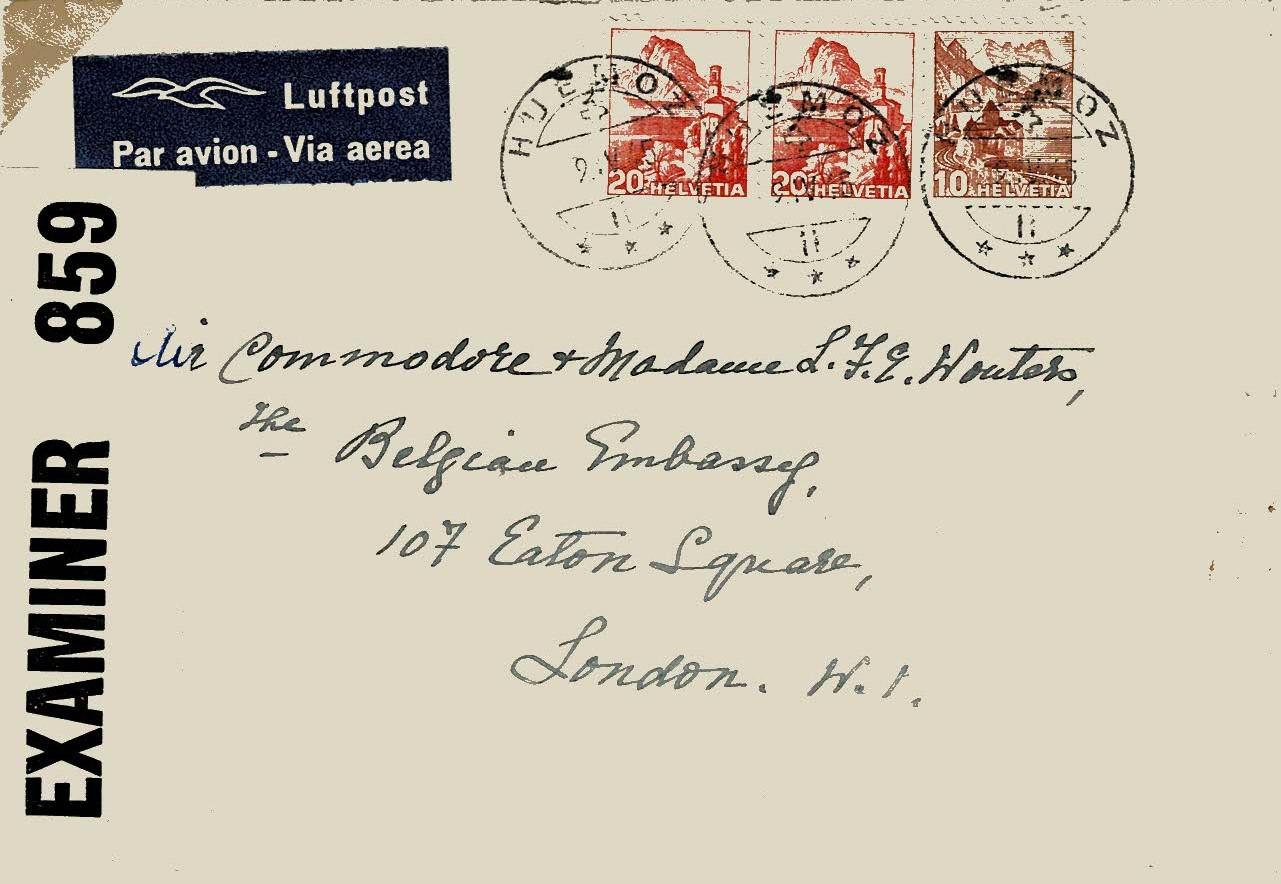 Luftpost
Par avion - Via aerea
HUEMOZ
HUEMOZ
20 HELVETIA
20 HELVETIA
10 HELVETIA
11
11
11
EXAMINER 859
Air Commodore + Madame L. F. E. Wouters,
The
Belgian Embassy,
107 Eaton Square,
London. W. 1.